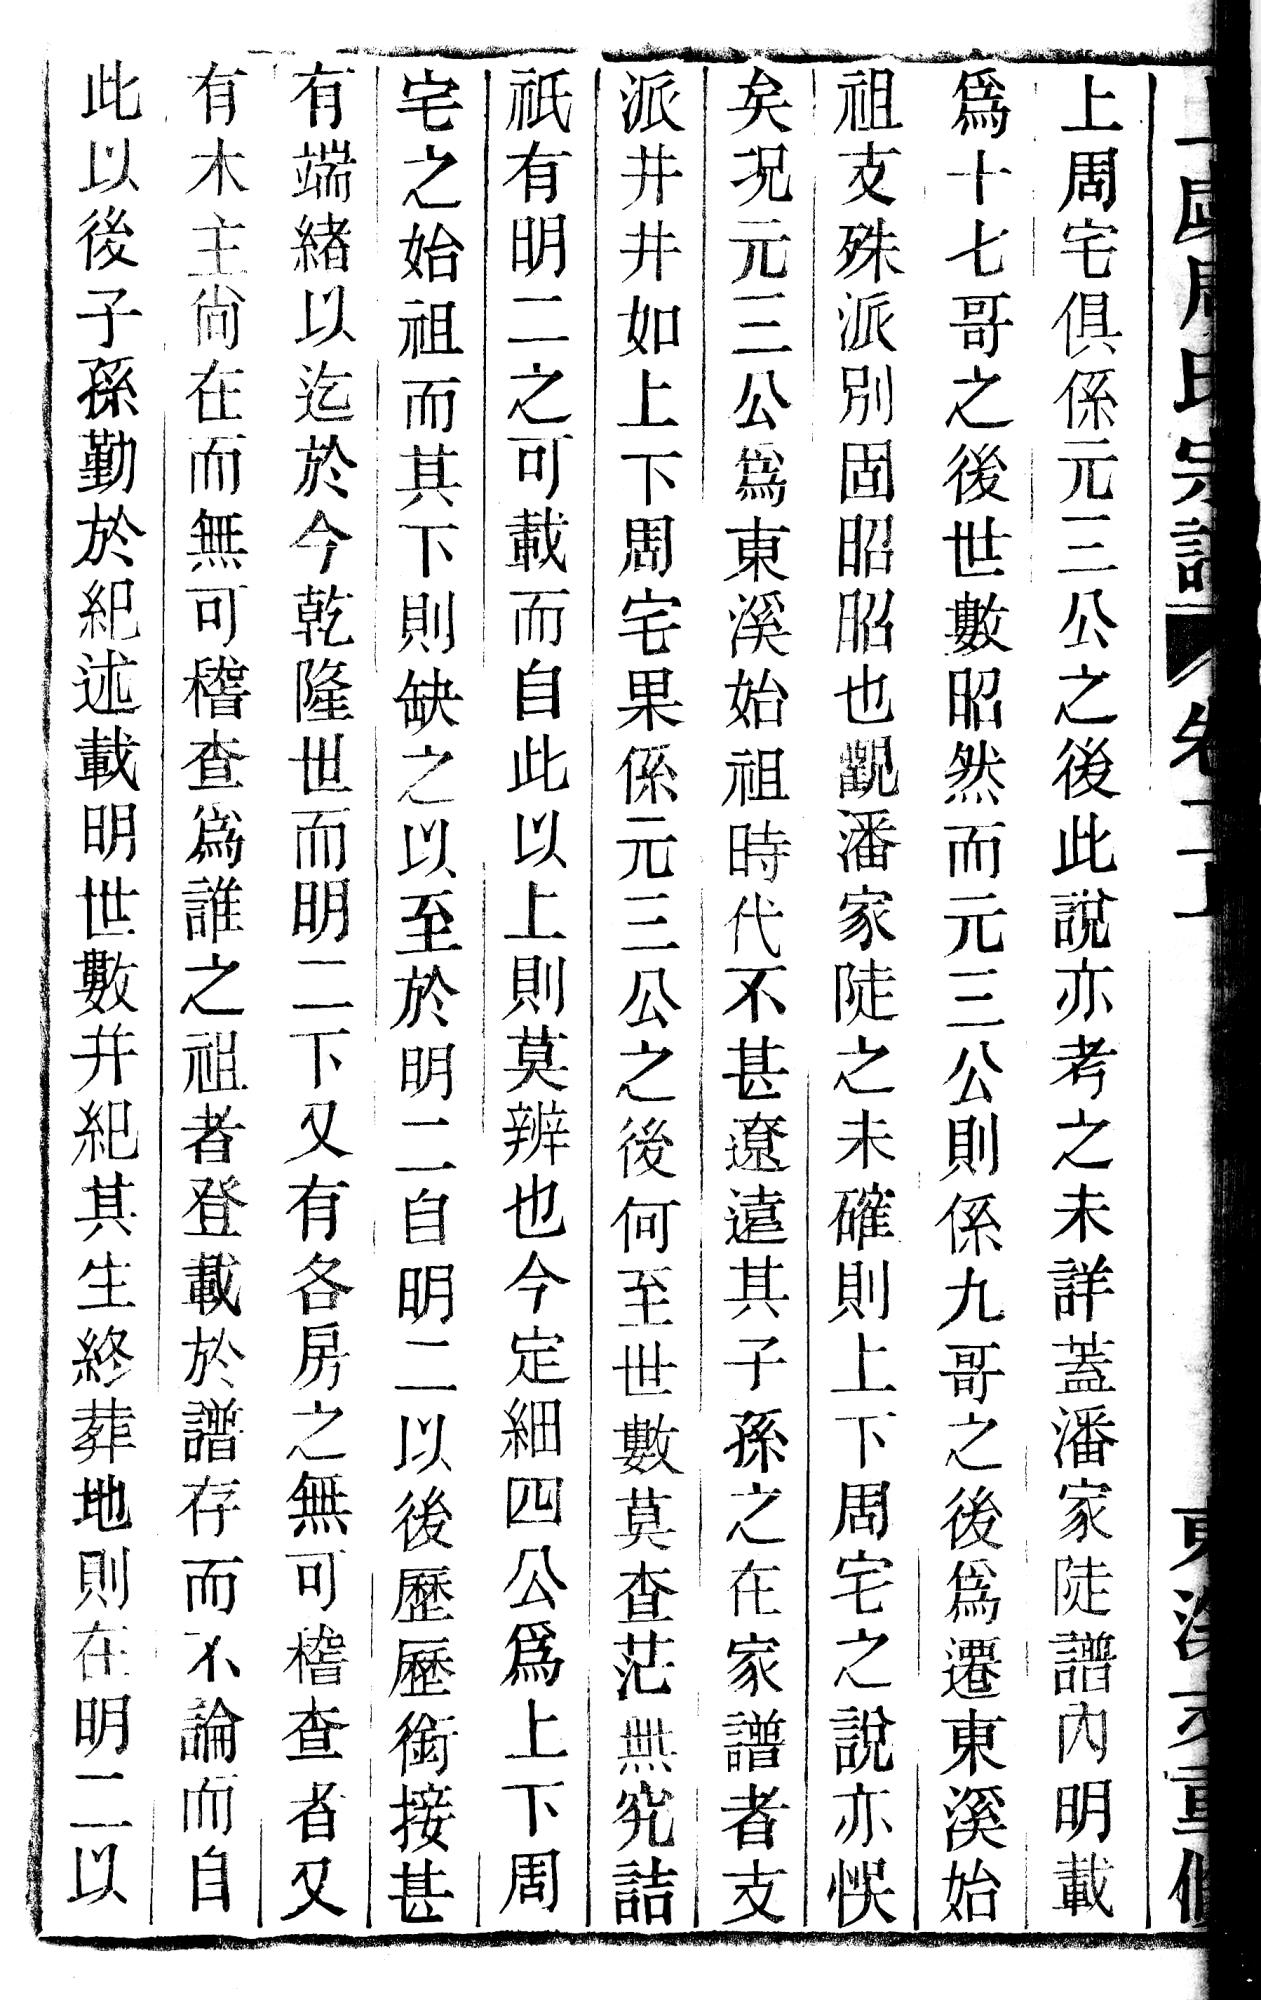 周氏宗譜 卷二上 東溪 重修
上周宅俱係元三公之後此說亦考之未詳蓋潘家陡譜內明載
爲十七哥之後世數昭然而元三公則係九哥之後爲遷東溪始
祖支殊派別固昭昭也觀潘家陡之未確則上下周宅之說亦悞
矣况元三公爲東溪始祖時代不甚遼遠其子孫之在家譜者支
派井井如上下周宅果係元三公之後何至世數莫查茫無究詰
祇有明二之可載而自此以上則莫辨也今定細四公爲上下周
宅之始祖而其下則缺之以至於明二自明二以後歷歷銜接甚
有端緒以迄於今乾隆世而明二下又有各房之無可稽查者又
有木主尙在而無可稽查爲誰之祖者登載於譜存而不論而自
此以後子孫勤於紀述載明世數并紀其生終葬地則在明二以